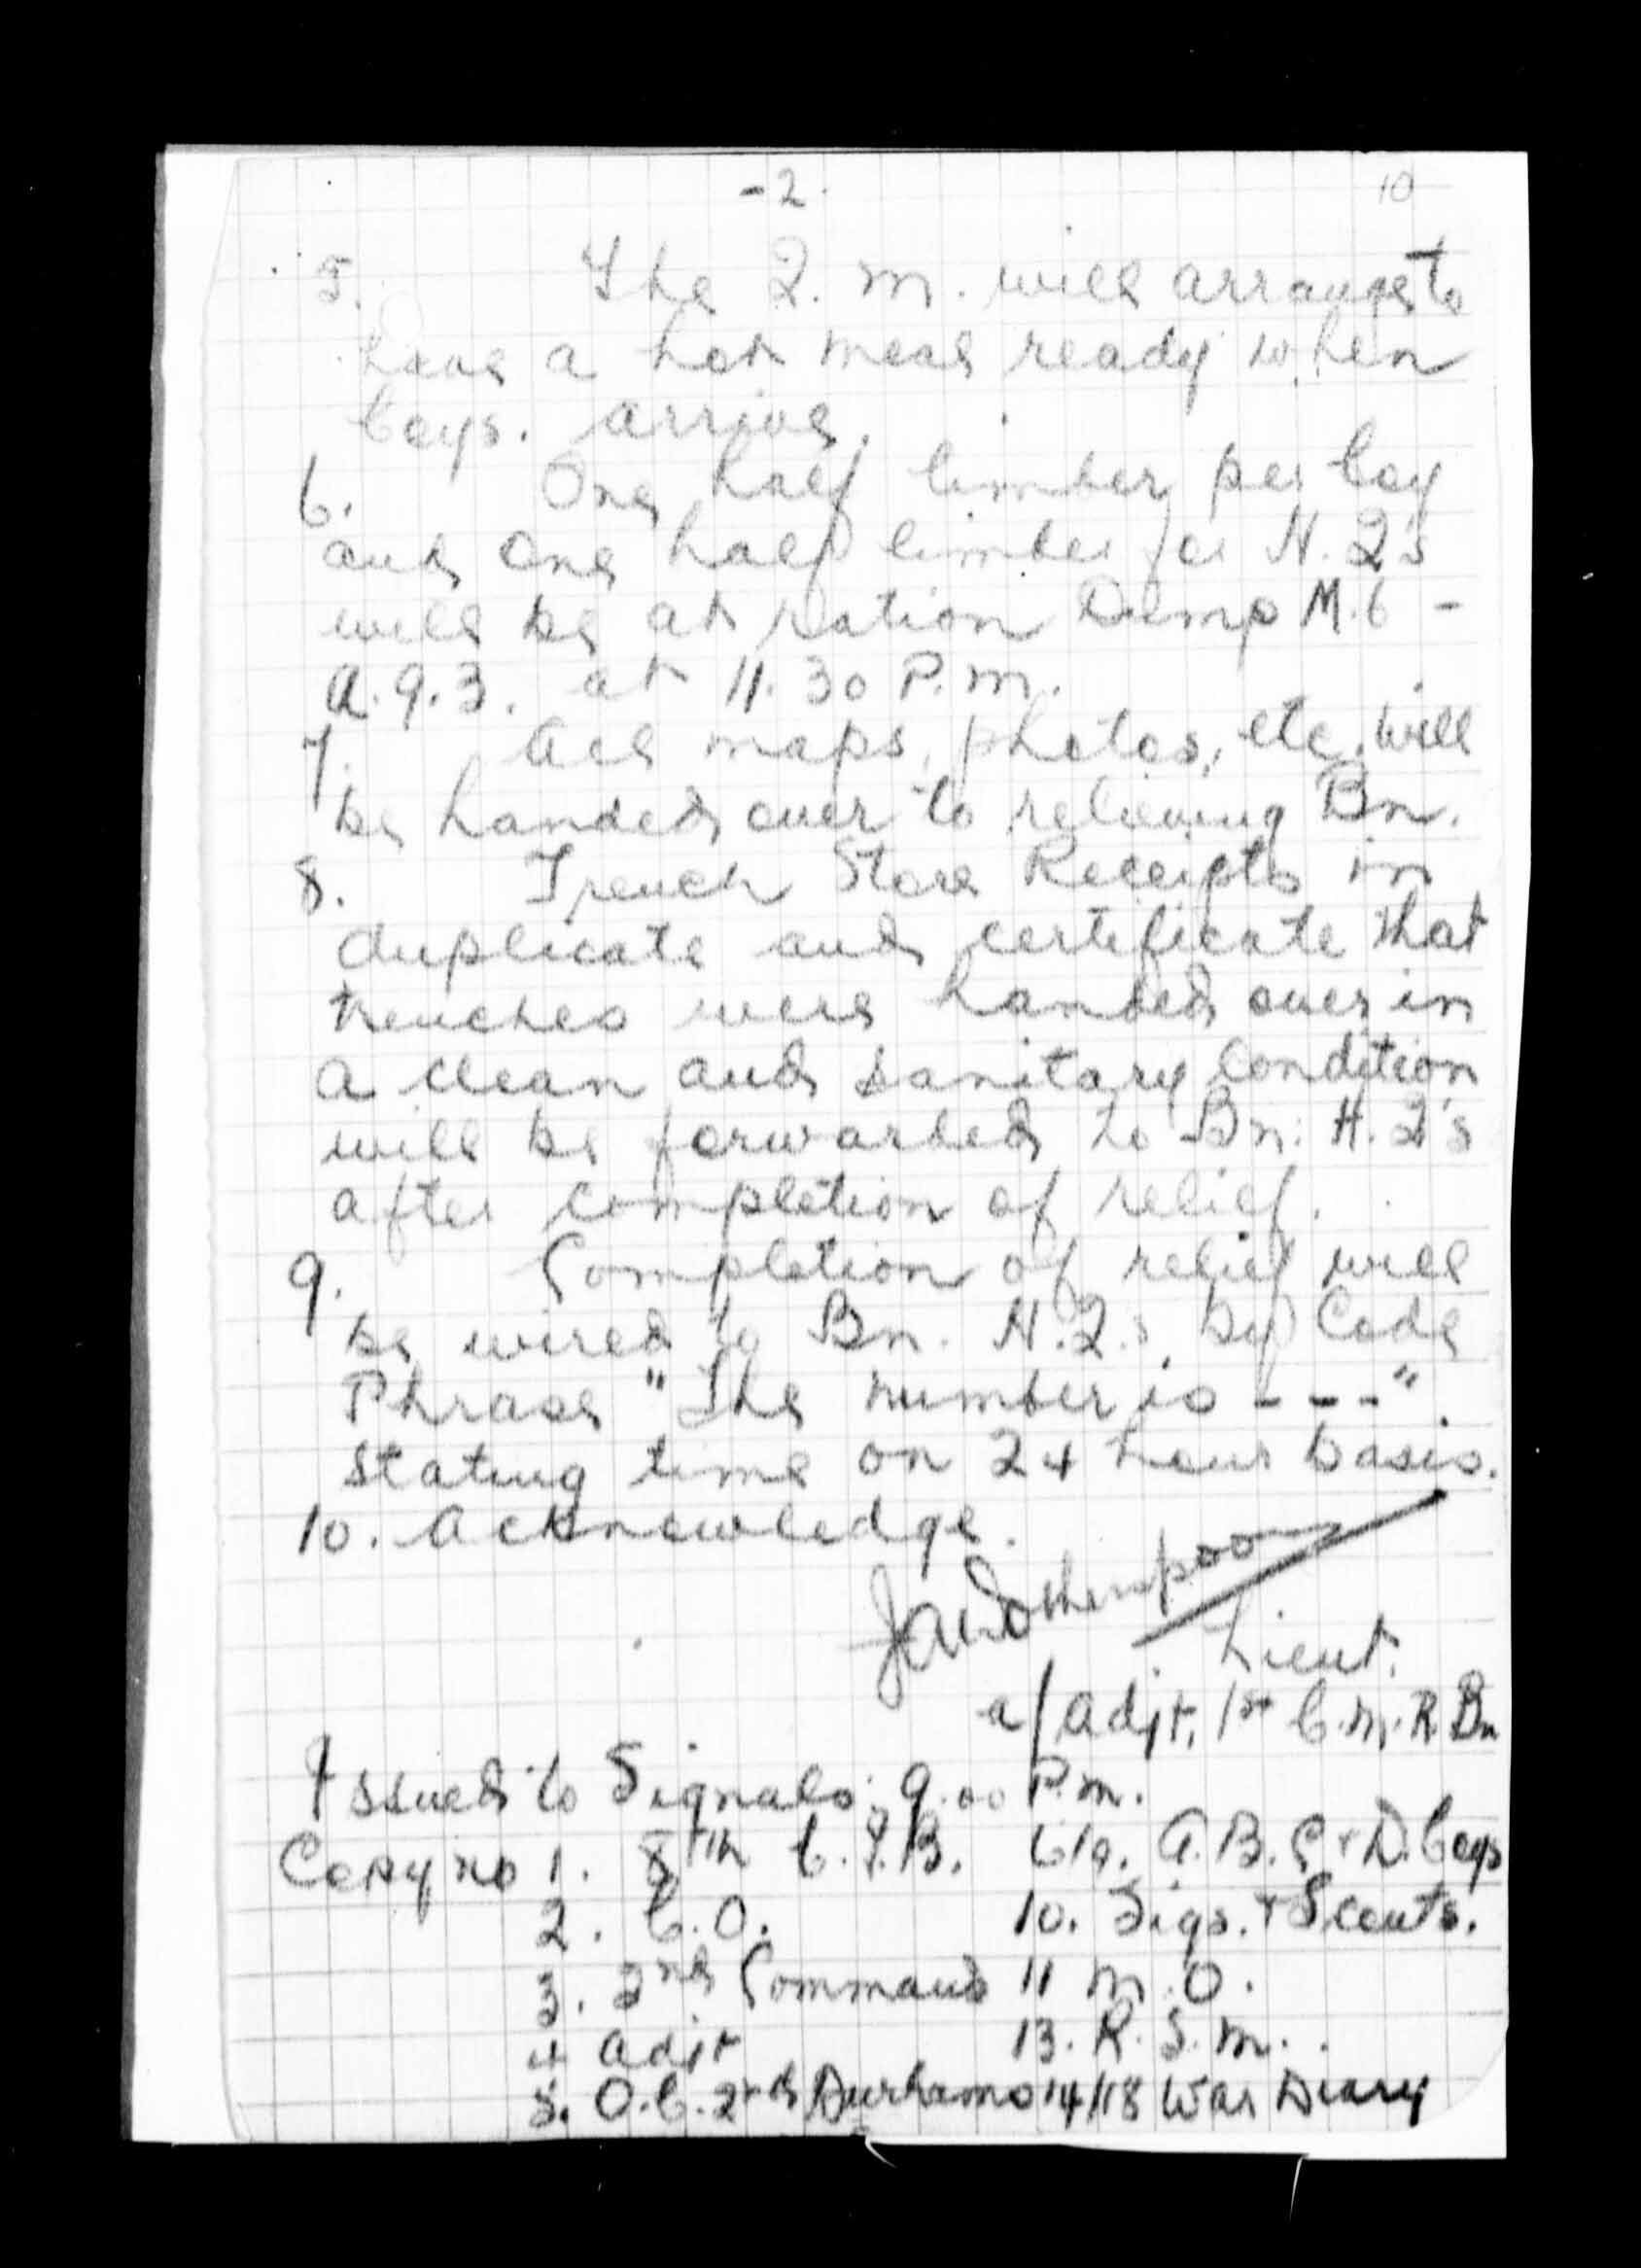 - 2 -
10
5. The Q.M. will arrange to
have a hot meal ready when
Coys. arrive.
6. One half limber per Coy
and one half limber for H.Q's
will be at ration Dump M.6 -
A.9.3. at 11.30 P.M.
7. All maps, photos, etc, will
be handed over to relieving Bn.
8. Trench Store Receipts in
duplicate and certificate that
trenches were handed over in
a clean and sanitary condition
will be forwarded to Bn. H.Q's
after completion of relief.
9. Completion of relief will
be wired to Bn. H.Q.s. by Code
Phrase "The number is - - - ".
stating time on 24 hour basis.
10. Acknowledge.
JAWotherspoon
Lieut.
a/Adjt. 1st C.M.R. Bn
Issued to Signals. 9.00 P.M.
Copy no 1. 8th C.I.B. 6/9. A.B.C + D. Coys
2. C.O. 10. Sigs. + Scouts.
3. 2nd Command 11 M.O.
4 Adjt 13. R.S.M.
5. O.C. 2nd Durhams 14/18 War Diary